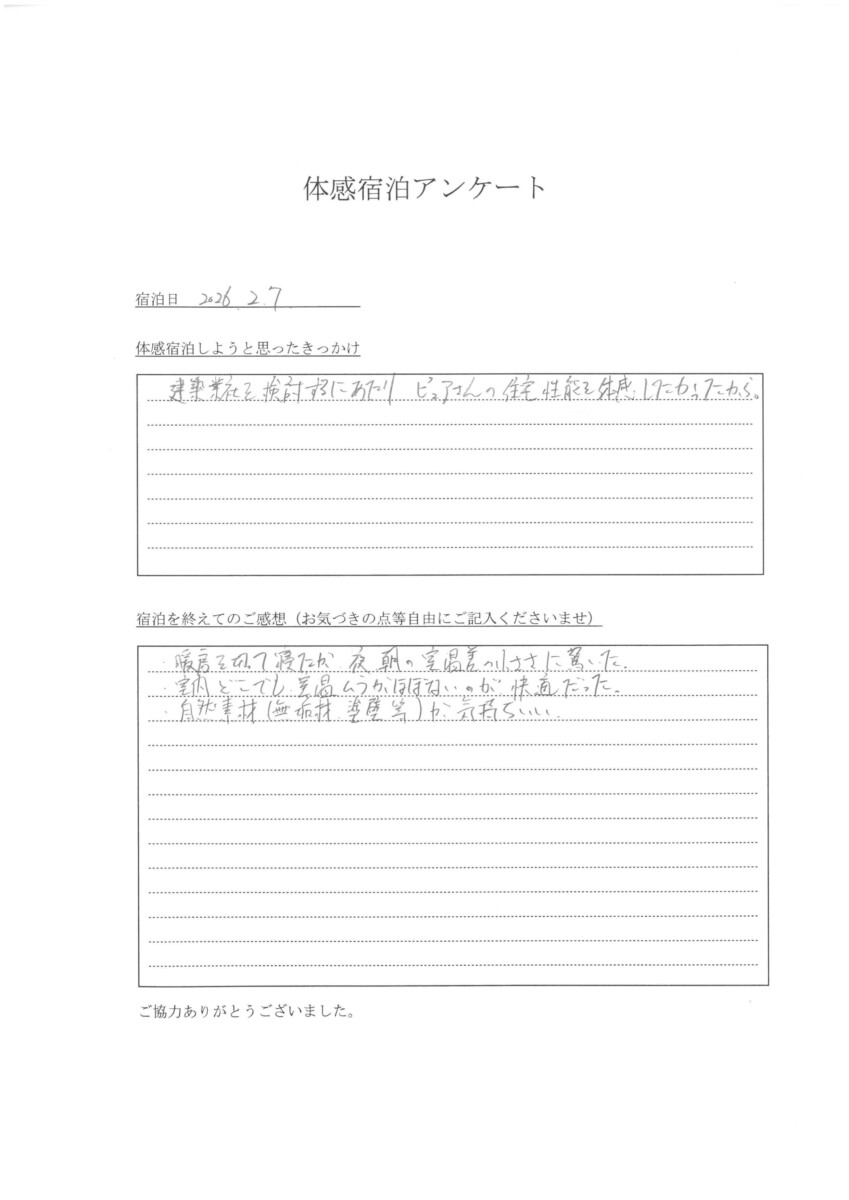 体感宿泊アンケート
宿泊日 2026.2.7
体感宿泊しようと思ったきっかけ
建築業社を検討するにあたり ピュアさんの住宅性能を体感したかったから。
宿泊を終えてのご感想（お気づきの点等自由にご記入くださいませ）
・暖房を切って寝たが 夜朝の室温差の小ささに驚いた。
・室内どこでも室温ムラがほぼないのが快適だった。
・自然素材(無垢材、塗壁等)が気持ちいい.
ご協力ありがとうございました。